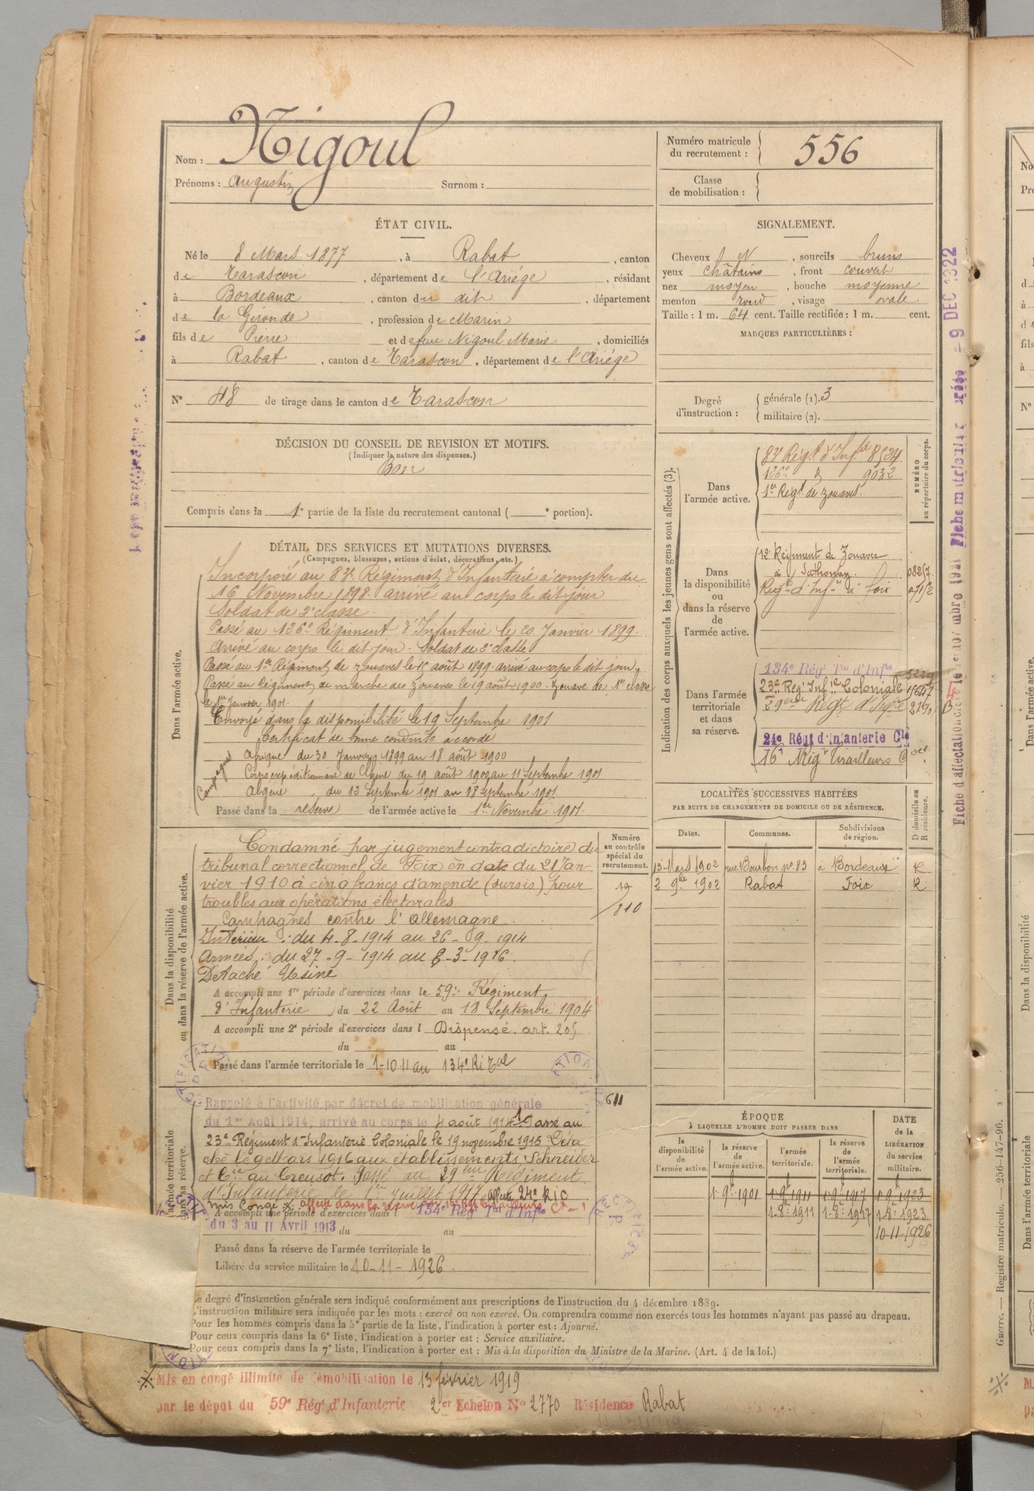 Nom : Nigoul
Prénoms : Augustin Surnom :
Numéro matricule du recrutement : 556
Classe de mobilisation :
ÉTAT CIVIL.
Né le 8 Mars 1877, à Rabat, canton
de Tarascon, département de l'Ariége, résidant
à Bordeaux, canton du dit, département
de la Gironde, profession de Marin
fils de Pierre et de feue Nigoul Marie, domiciliés
à Rabat, canton de Tarascon, département de l'Ariége
N° 48 de tirage dans le canton de Tarascon
SIGNALEMENT.
Cheveux N, sourcils bruns
yeux châtains, front couvert
nez moyen, bouche moyenne
menton rond, visage ovale
Taille : 1 m. 64 cent. Taille rectifiée : 1 m. cent.
MARQUES PARTICULIÈRES :
Degré d'instruction : générale (1). 3
militaire (2).
DÉCISION DU CONSEIL DE REVISION ET MOTIFS.
(Indiquer la nature des dispenses.)
Bon
Compris dans la 1e partie de la liste du recrutement cantonal ( e portion).
DÉTAIL DES SERVICES ET MUTATIONS DIVERSES.
(Campagnes, blessures, actions d'éclat, décorations, etc.)
Dans l'armée active.
Incorporé au 83e Régiment d'Infanterie à compter du
16 Novembre 1898. arrivé au corps le dit jour
Soldat de 2e classe.
Passé au 126e Régiment d'Infanterie le 20 Janvier 1899.
Arrivé au corps le dit jour. Soldat de 2e classe
Passé au 1er Régiment de zouaves le 1er août 1899 arrivé au corps le dit jour.
Passé au Régiment de marche des Zouaves le 19 août 1900. Zouave de 1e classe
le 1er Janvier 1901.
Envoyé dans la disponibilité le 19 Septembre 1901
Certificat de bonne conduite accordé
Campagnes
Afrique du 30 Janvier 1899 au 18 août 1900
Corps expéditionnaire de Chine du 19 août 1900 au 11 Septembre 1901
Algérie, du 12 Septembre 1901 au 18 Septembre 1901
Passé dans la réserve de l'armée active le 1er Novembre 1901
Indication des corps auxquels les jeunes gens sont affectés (3).
NUMÉRO au répertoire du corps.
Dans l'armée active.
83e Régt d'Infie 8534
126e d° 9032
1er Régt de zouaves.
Dans la disponibilité ou dans la réserve de l'armée active.
Régiment de Zouaves
Régt d'Infie de Foix
Dans l'armée territoriale et dans sa réserve.
134e Régt Tal d'Infie
23e Régt Infie Coloniale
59eme Régt d'Infie
24e Régt d'Infanterie Cle
16e Régt Tirailleurs
LOCALITÉS SUCCESSIVES HABITÉES
PAR SUITE DE CHANGEMENTS DE DOMICILE OU DE RÉSIDENCE.
D domicile ou R résidence.
Dates. Communes. Subdivisions de région.
15 Mars 1902 rue Bourbon n° 13 à Bordeaux R
2 9bre 1902 Rabat Foix R
Numéro au contrôle spécial du recrutement.
810
Dans la disponibilité ou dans la réserve de l'armée active.
Condamné par jugement contradictoire du
tribunal correctionnel de Foix en date du 21 Jan-
vier 1910 à cinq francs d'amende (sursis) pour
troubles aux opérations électorales.
Campagnes contre l'allemagne
Intérieur : du 4-8-1914 au 26-9-1914
Armées : du 27-9-1914 au 8-3-1916.
Détaché Usine
A accompli une 1re période d'exercices dans le 59e Régiment
d'Infanterie du 22 Août au 18 Septembre 1904
A accompli une 2e période d'exercices dans l Dispensé. art. 205
du au
Passé dans l'armée territoriale le 1-10 11 au 134e Ri Tal
611
Rappelé à l'activité par décret de mobilisation générale
du 1er Août 1914, arrivé au corps le 4 août 1914. Passé au
23e Régiment d'Infanterie Coloniale le 19 novembre 1915 Déta
ché le 9 mars 1916 aux établissements Schneider
et Cie au Creusot. Passé au 59eme Régiment
d'Infanterie le 1er Juillet 1917 affecté 24e RIC
A accompli une période d'exercices dans l 134e Régt Tal d'Infie
du 3 au 11 Avril 1913 du au
Passé dans la réserve de l'armée territoriale le
Libéré du service militaire le 10-11-1926.
ÉPOQUE
À LAQUELLE L'HOMME DOIT PASSER DANS
la disponibilité de l'armée active.
la réserve de l'armée active.
l'armée territoriale.
la réserve de l'armée territoriale.
DATE de la LIBÉRATION du service militaire.
1-9e-1901 1-9e-1911 1-9e-1917 1-9-1923
1-8e-1911 1-8e-1917 1-8-1923
10-11-1926
Le degré d'instruction générale sera indiqué conformément aux prescriptions de l'instruction du 4 décembre 1889.
L'instruction militaire sera indiquée par les mots : exercé ou non exercé. On comprendra comme non exercés tous les hommes n'ayant pas passé au drapeau.
Pour les hommes compris dans la 5e partie de la liste, l'indication à porter est : Ajourné.
Pour ceux compris dans la 6e liste, l'indication à porter est : Service auxiliaire.
Pour ceux compris dans la 7e liste, l'indication à porter est : Mis à la disposition du Ministre de la Marine. (Art. 4 de la loi.)
Mis en congé illimité de démobilisation le 13 février 1919
par le dépot du 59e Régt d'Infanterie 2er Echelon N° 2770 Résidence Rabat
9 DEC 1922
Guerre. — Registre matricule. — 256-147-96.